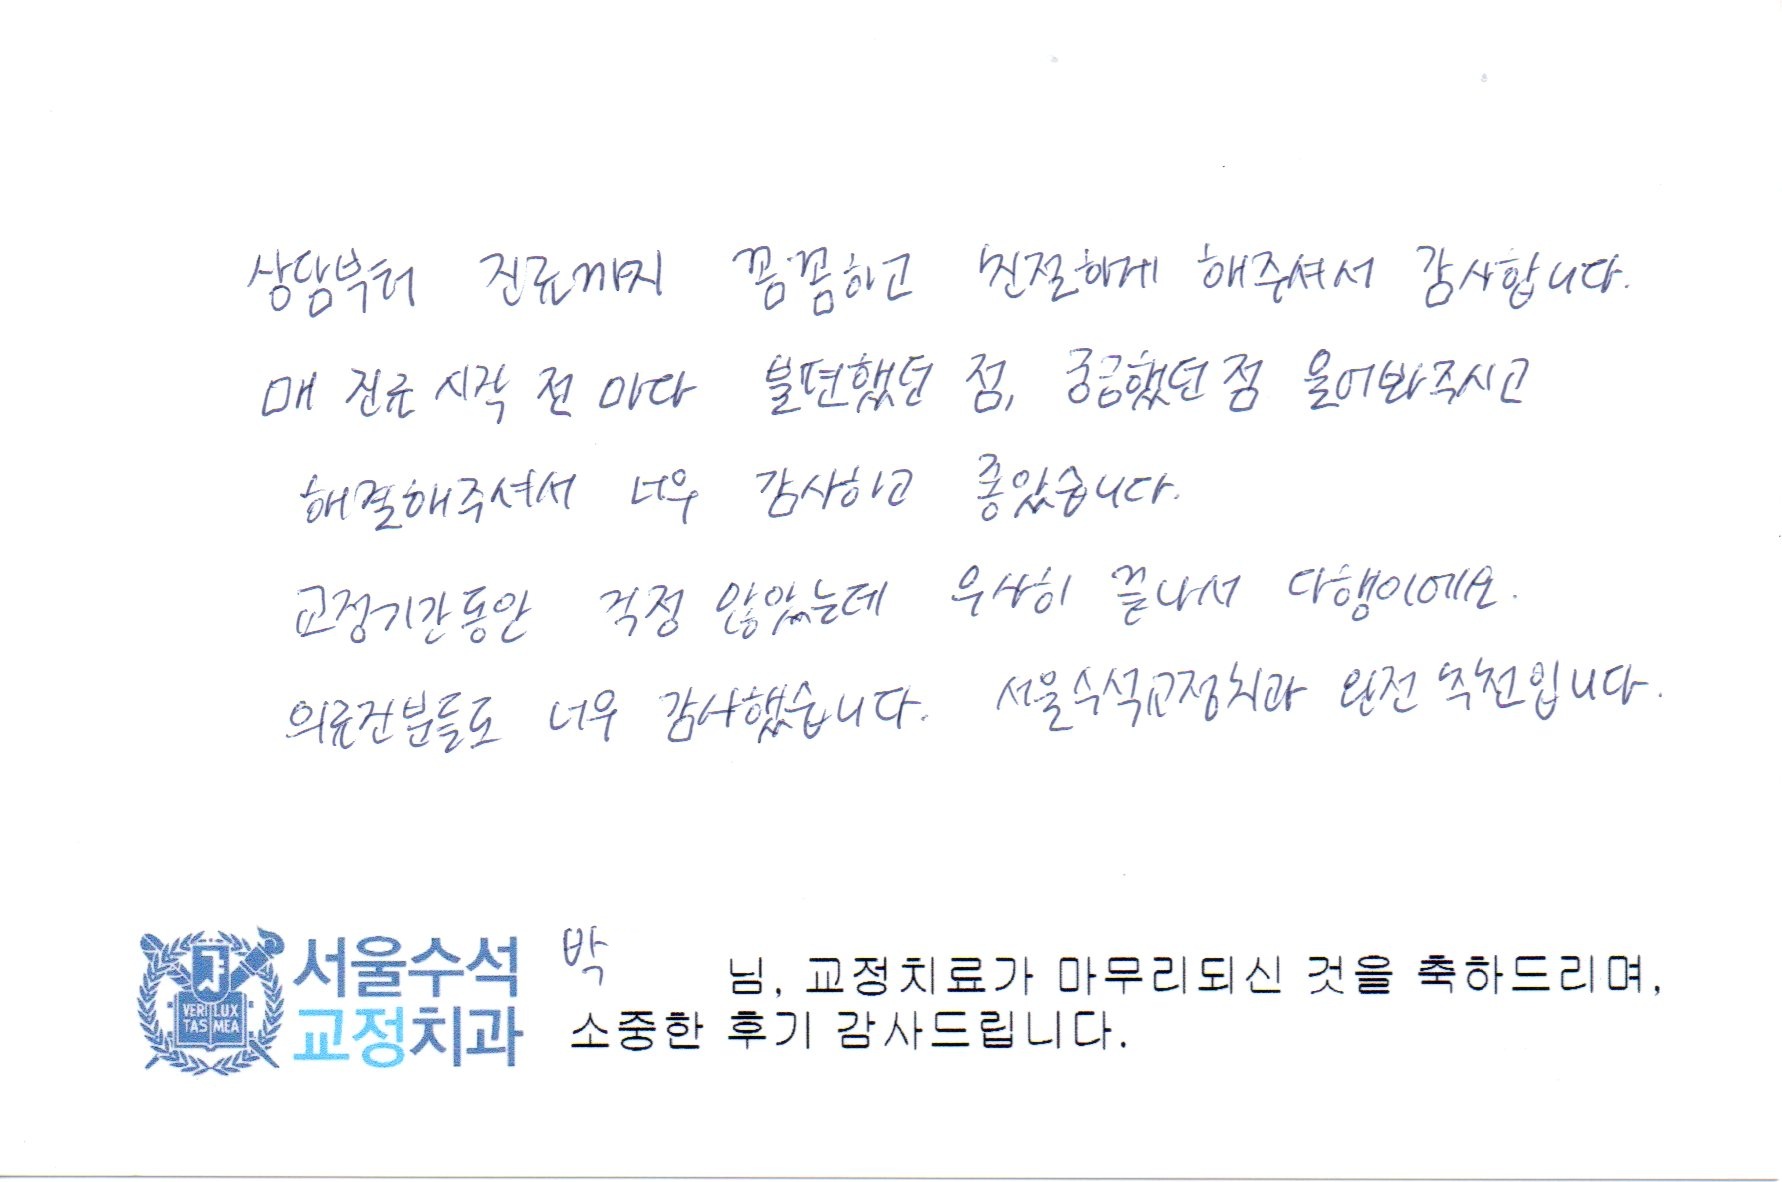 상담부터 진료까지 꼼꼼하고 친절하게 해주셔서 감사합니다.
매 진료 시작 전 마다 불편했던 점, 궁금했던 점 물어봐주시고
해결해주셔서 너무 감사하고 좋았습니다.
교정기간동안 걱정 많았는데 무사히 끝나서 다행이에요.
의료진분들도 너무 감사했습니다. 서울수석교정치과 완전 추천입니다.
서울수석
교정치과
VERI LUX
TAS MEA
박 님, 교정치료가 마무리되신 것을 축하드리며,
소중한 후기 감사드립니다.